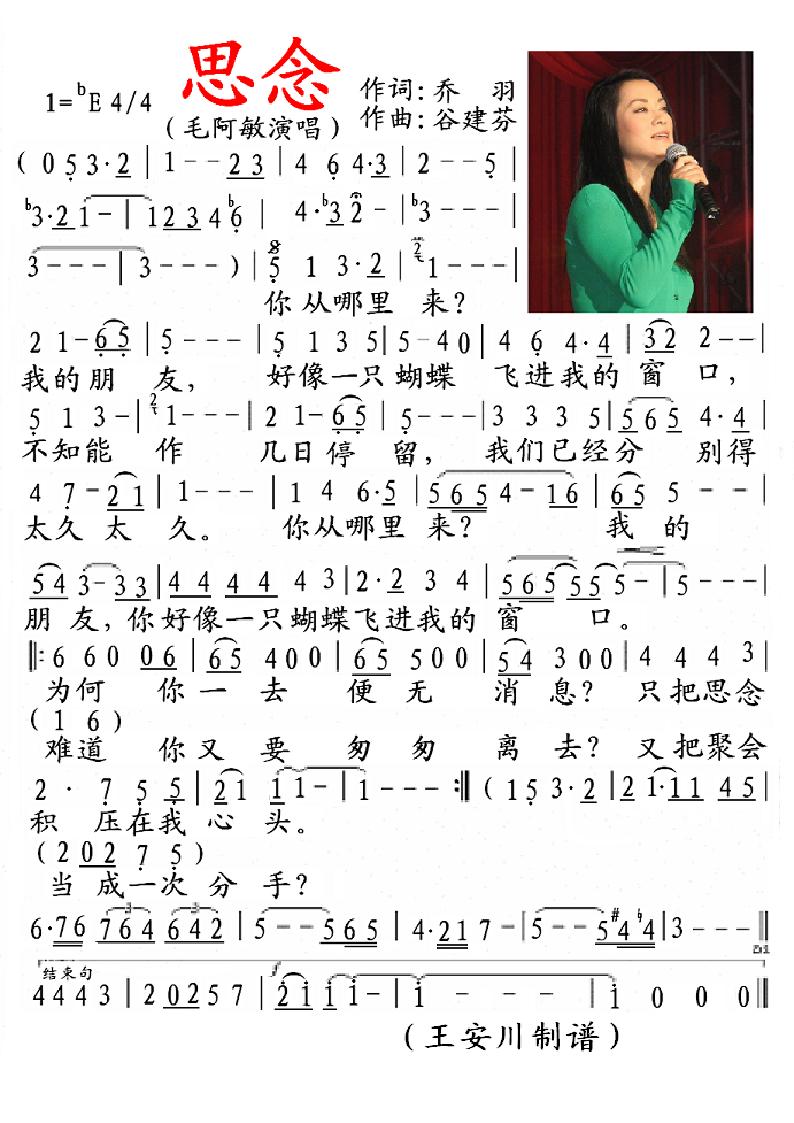 思念
1=ᵇE 4/4
作词：乔 羽
（毛阿敏演唱）
作曲：谷建芬
( 0 5 3·2 | 1 - - 2 3 | 4 6 4·3 | 2 - - 5 |
ᵇ3·2 1 - | 1 2 3 4 ᵇ6 | 4·ᵇ3 2 - | ᵇ3 - - - |
3 - - - | 3 - - - ) | 5 1 3·2 | 1 - - - |
你从哪里 来？
2 1- 6 5 | 5 - - - | 5 1 3 5 | 5 - 4 0 | 4 6 4·4 | 3 2 2 - - |
我的朋 友， 好像一只蝴蝶 飞进我的 窗 口，
5 1 3 - | 1 - - - | 2 1- 6 5 | 5 - - - | 3 3 3 5 | 5 6 5 4·4 |
不知能 作 几日停 留， 我们已经分 别得
4 7 - 2 1 | 1 - - - | 1 4 6·5 | 5 6 5 4 - 1 6 | 6 5 5 - - |
太久 太 久。 你从哪里 来？ 我 的
5 4 3 - 3 3 | 4 4 4 4 4 3 | 2·2 3 4 | 5 6 5 5 5 5 - | 5 - - - |
朋 友，你好像一只蝴蝶飞进我的 窗 口。
‖: 6 6 0 0 6 | 6 5 4 0 0 | 6 5 5 0 0 | 5 4 3 0 0 | 4 4 4 3 |
为何 你一 去 便 无 消 息？ 只把思念
( 1 6 )
难道 你又 要 匆 匆 离 去？又把聚会
2 · 7 5 5 | 2 1 1 1 - | 1 - - - :‖ ( 1 5 3·2 | 2 1·1 1 4 5 |
积 压在我 心 头。
( 2 0 2 7 5 )
当 成一次 分 手？
6·7 6 7 6 4 6 4 2 | 5 - - 5 6 5 | 4·2 1 7 - | 5 - - 5 #4 ♮4 | 3 - - - ‖
D.S.
结束句
4 4 4 3 | 2 0 2 5 7 | 2 1 1 - | 1 - - - | 1 0 0 0 ‖
（王安川制谱）